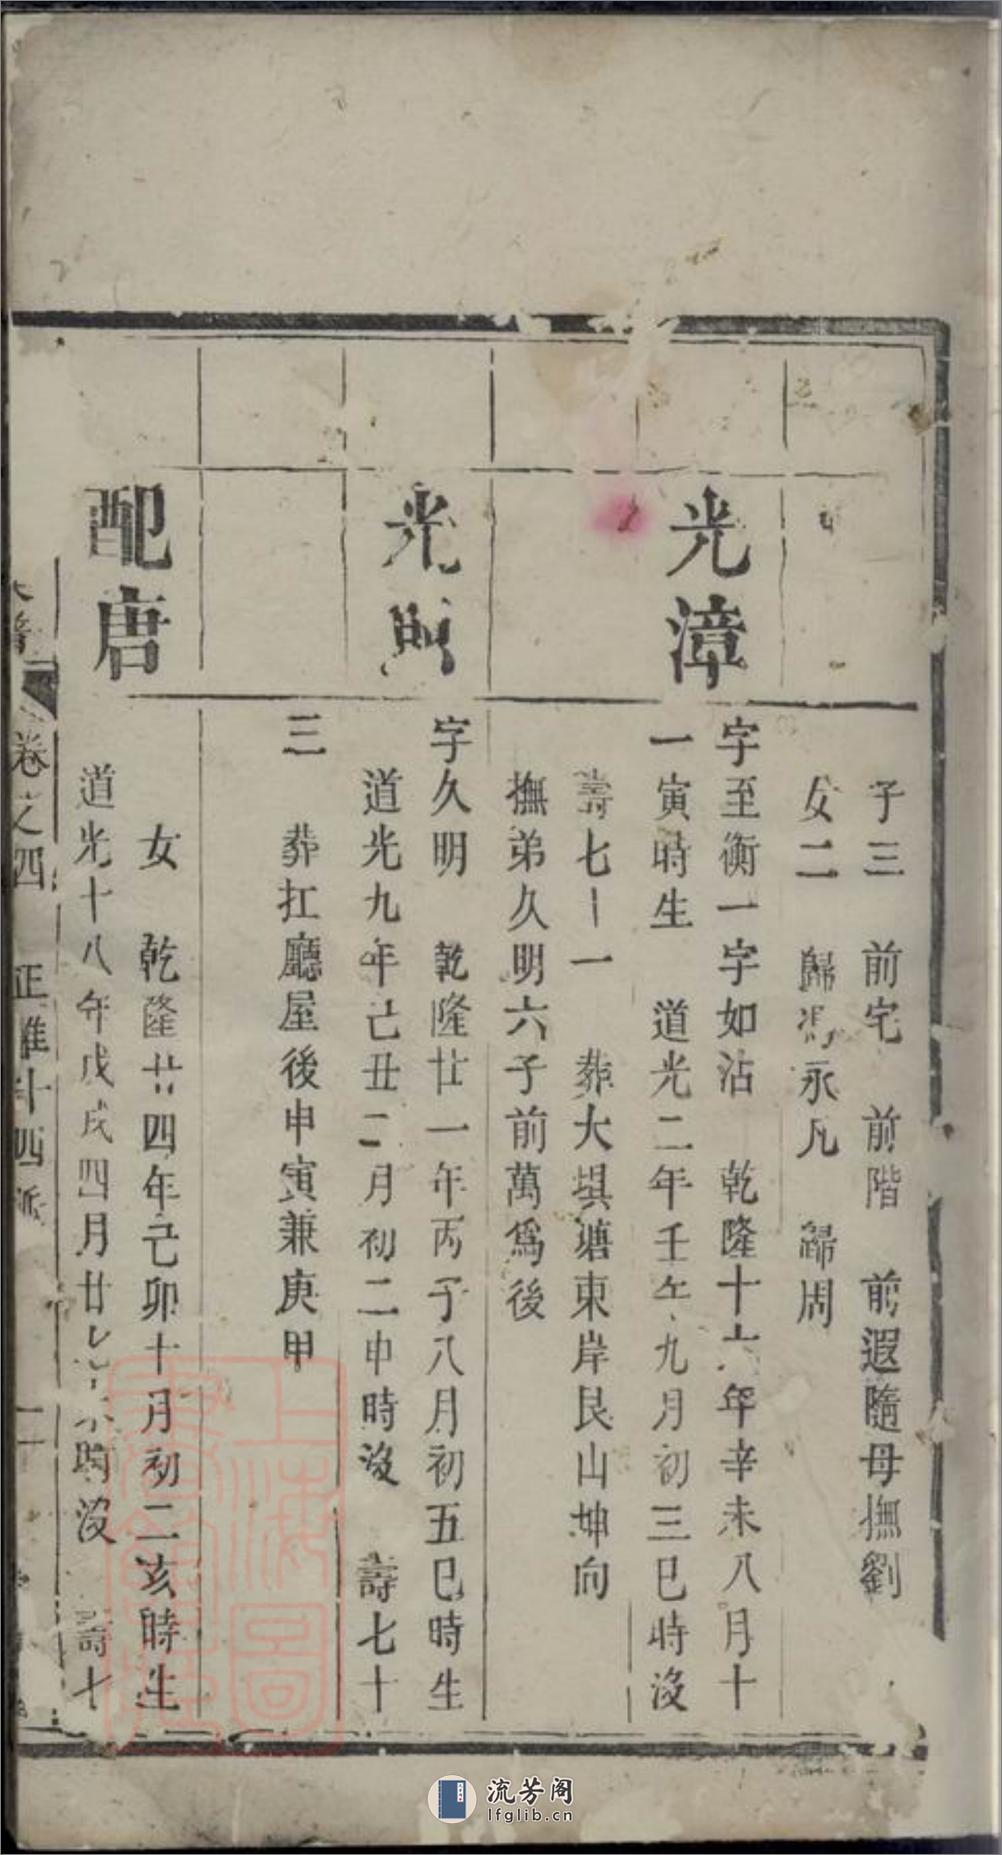 子三　前宅　前階　前遐隨母撫劉
女二　歸馮永凡　歸周
光漳
字至衡一字如沾　乾隆十六年辛未八月十
一寅時生　道光二年壬午九月初三巳時沒
壽七十一　葬大塡塘東岸艮山坤向
撫弟久明六子前萬為後
光則
字久明　乾隆廿一年丙子八月初五巳時生
道光九年己丑二月初二申時沒　壽七十
三　葬扛廳屋後申寅兼庚甲
配唐
女　乾隆廿四年己卯十月初二亥時生
道光十八年戊戌四月廿　時沒　壽七
卷之四　正雅十四派
上海圖書館藏
流芳阁
lfglib.cn